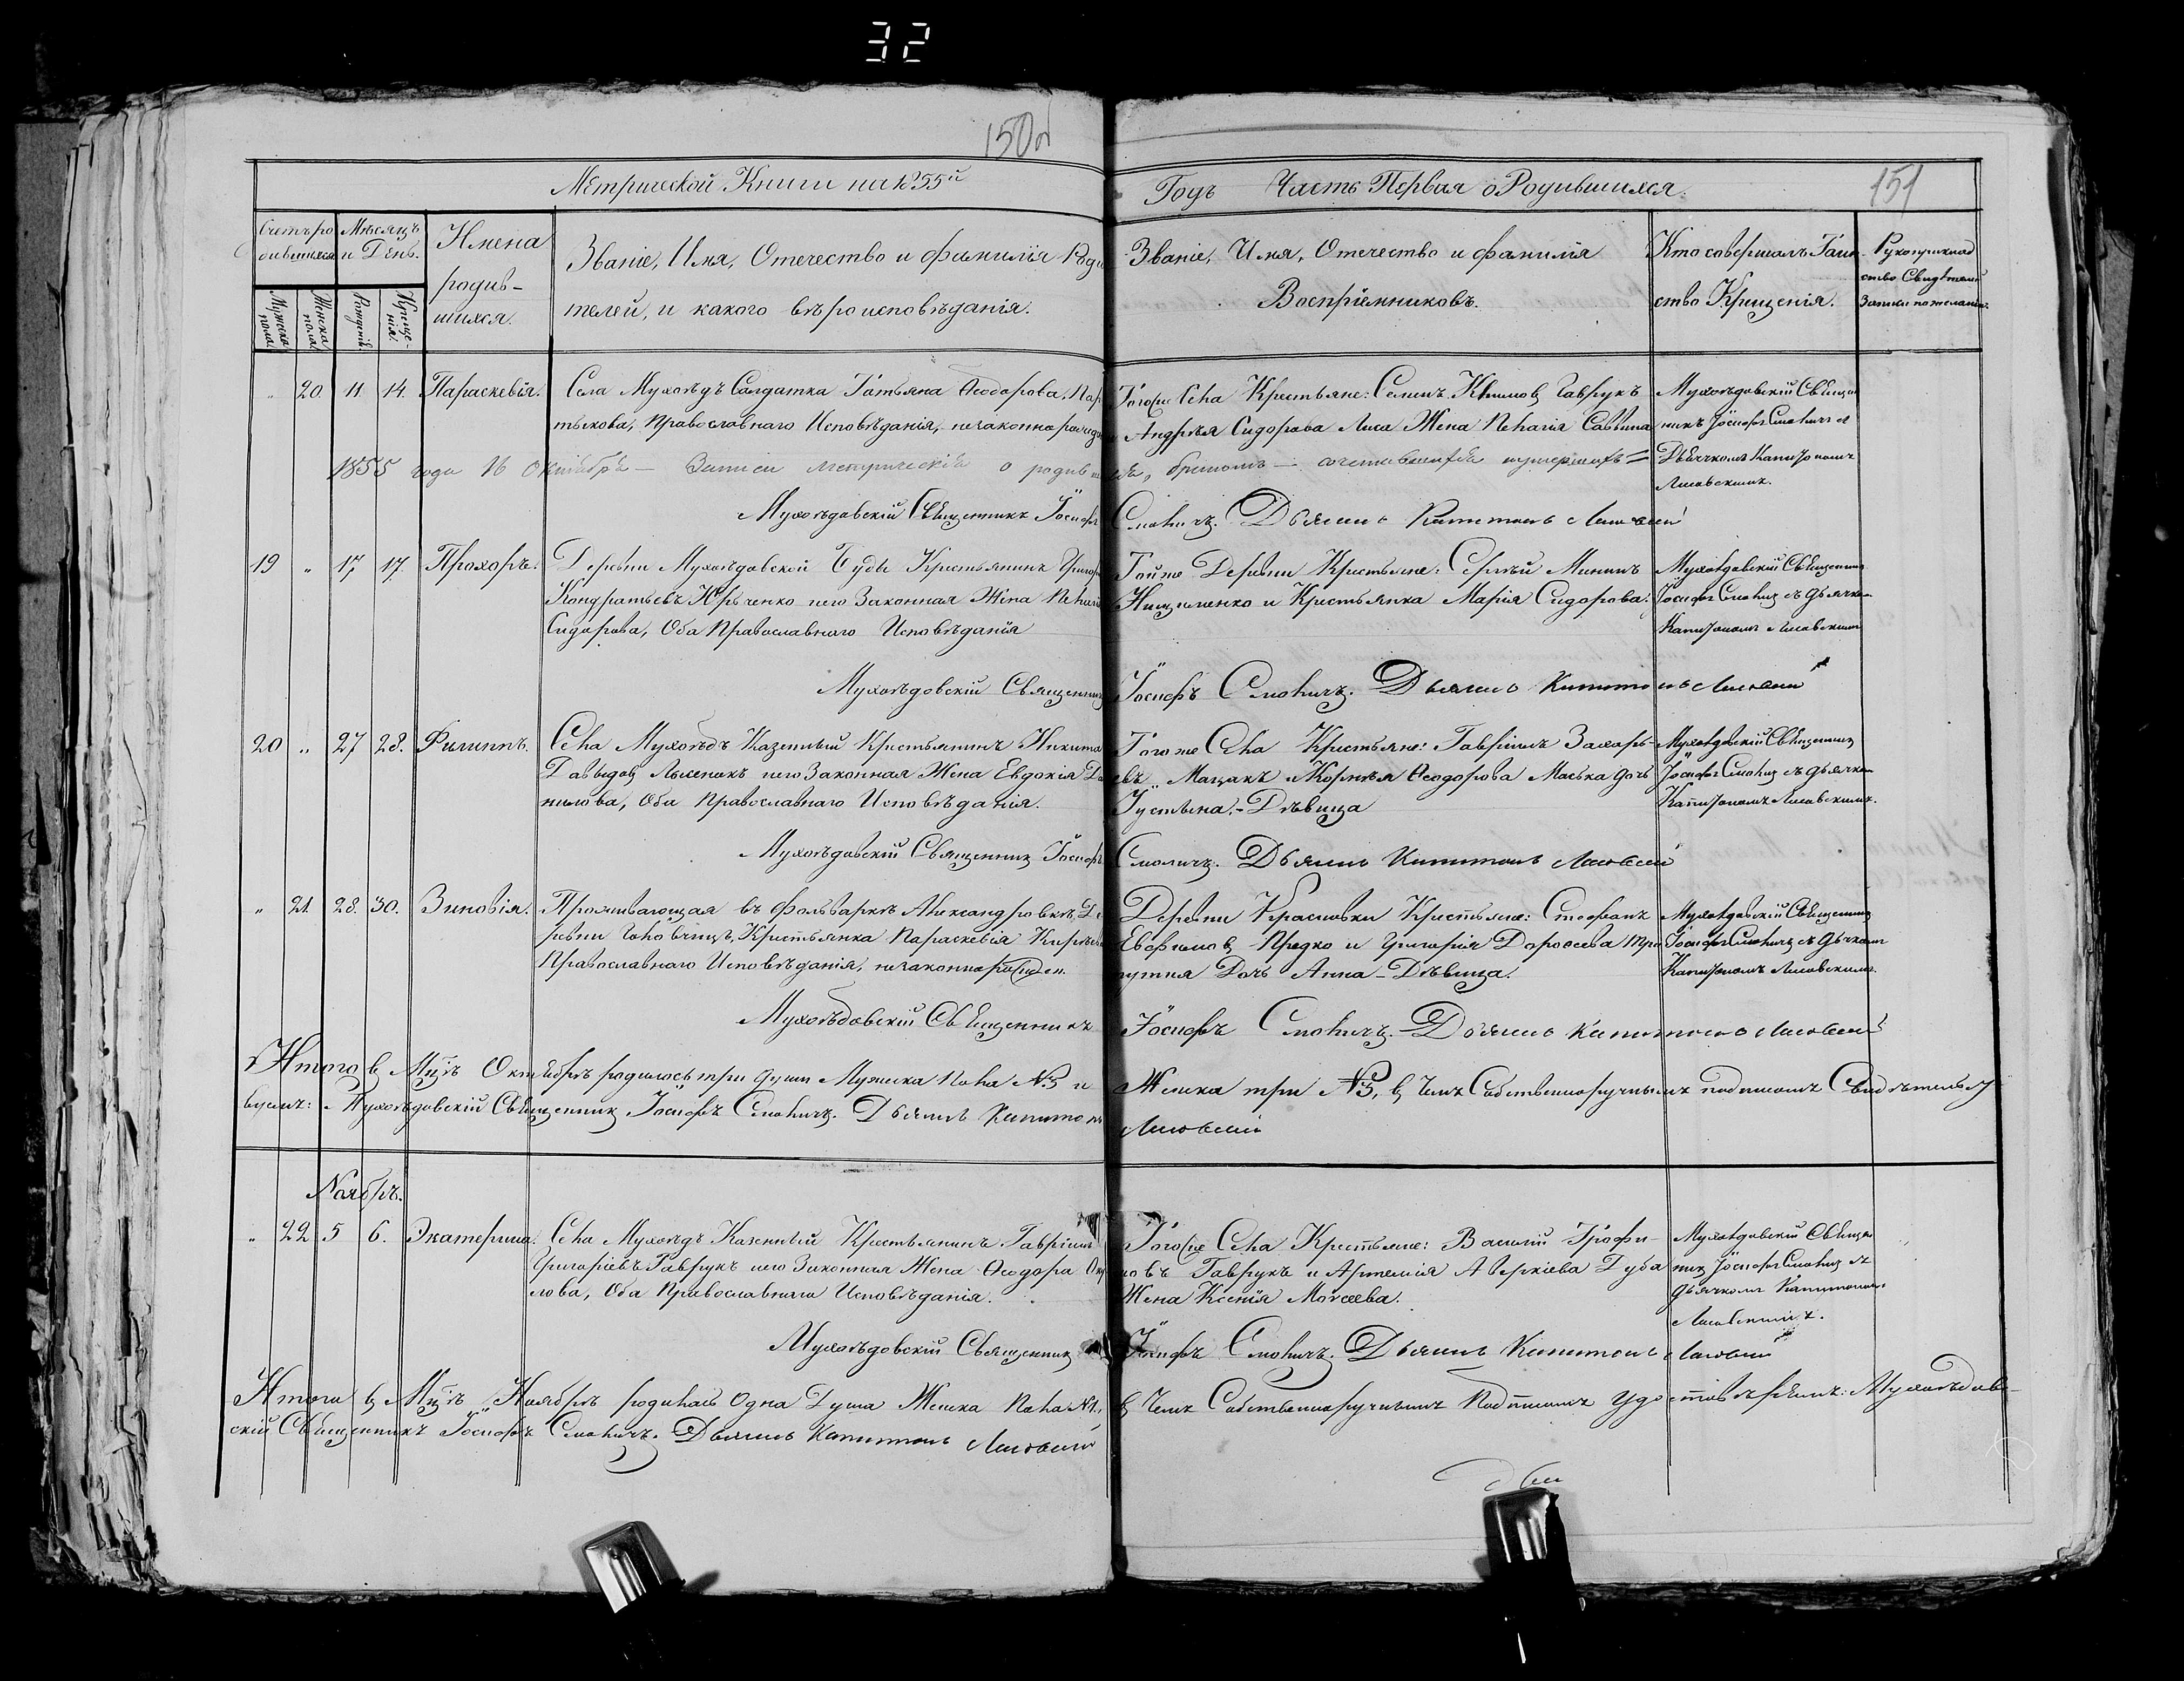 32
150об
151
Метрической Книги на 1855й
Годъ Часть Первая о Родившихся.
Счетъ ро
дившихся
Мѣсяцъ
и День.
Имена
родив-
шихся.
Мужска
пола.
Женска
пола.
Рожденія.
Креще-
нія.
Званіе, Имя, Отечество и фамилія Роди
телей, и какого вѣроисповѣданія.
Званіе, Имя, Отечество и фамилія
Воспріемниковъ.
Кто совершалъ Таин
ство Крещенія.
Рукоприклад
ство Свидѣтелей
записи по желанію.
„ 20. 11. 14. Параскевія.
Села Мухоѣдъ Солдатка Татьяна Ѳеодорова
Православнаго Исповѣданія, незаконно
Тогоже Села Крестьяне: Семенъ Климовъ Гаврукъ
Андрея Сидорова Лиса Жена Пелагія Саввина
Мухоѣдовскій Священ
никъ Іосифъ Смоличъ съ
Дьячкомъ Капитономъ
Лисовскимъ.
1855 года 16 Октября — Записи метрическія о родив
Мухоѣдовскій Священникъ Іосифъ
Смоличъ. Дьячекъ Капитонъ Лисовскій
19 „ 17 17. Прохоръ.
Деревни Мухоѣдовской Буды Крестьянинъ Григор
Кондратьевъ Юрченко его Законная Жена Пелагія
Сидорова, Оба Православнаго Исповѣданія
Тойже Деревни Крестьяне: Сергѣй Мининъ
Нищименко и Крестьянка Марія Сидорова.
Мухоѣдовскій Священникъ
Іосифъ Смоличъ съ дьячком
Капитономъ Лисовскимъ
Мухоѣдовскій Священникъ
Іосифъ Смоличъ. Дьячекъ Капитонъ Лисовскій
20 „ 27 28. Филиппъ.
Села Мухоѣдъ Казенный Крестьянинъ Никита
Давыдовъ его Законная Жена Евдокія Да
нилова, Оба Православнаго Исповѣданія.
Тогоже Села Крестьяне: Гавріилъ Захарь-
евъ Мацакъ и Корнѣя Ѳеодорова Маська дочь
Іустина. - Дѣвица
Мухоѣдовскій Священникъ
Іосифъ Смоличъ съ дьячком
Капитономъ Лисовскимъ.
Мухоѣдовскій Священникъ Іосифъ
Смоличъ. Дьячекъ Капитонъ Лисовскій
„ 21. 28. 30. Зиновія.
Проживающая въ фольваркѣ Александровкѣ, Де
ревни Крестьянка Параскевія
Православнаго Исповѣданія, незаконнорожден.
Деревни Красновки Крестьяне: Стефанъ
Евфимовъ Предко и Григорія Дороѳеева
Дочь Анна - Дѣвица.
Мухоѣдовскій Священникъ
Іосифъ Смоличъ съ дьячкомъ
Капитономъ Лисовскимъ.
Мухоѣдовскій Священникъ
Іосифъ Смоличъ. Дьячекъ Капитонъ Лисовскій
Итого въ Мцѣ Октябрѣ родилось три души Мужска Пола №3 и
Женска три №3, въ Чемъ Собственноручнымъ подписомъ Свидѣтельст
вуемъ: Мухоѣдовскій Священникъ Іосифъ Смоличъ. Дьячекъ Капитонъ
Лисовскій
Ноябрь.
„ 22 5 6. Екатерина.
Села Мухоѣдъ Казенный Крестьянинъ Гавріилъ
Григоріевъ Гаврукъ его Законная Жена Ѳеодора
лова, Оба Православнаго Исповѣданія.
Тогоже Села Крестьяне: Василій Трофи-
мовъ Гаврукъ и Артемія Аверкіева Дуба
Жена Ксенія Моисеева.
Мухоѣдовскій Священ
никъ Іосифъ Смоличъ съ
дьячкомъ Капитономъ
Лисовскимъ.
Мухоѣдовскій Священникъ
Іосифъ Смоличъ. Дьячекъ Капитонъ Лисовскій
Итого въ Мцѣ Ноябрѣ родилась Одна Душа Женска Пола №1,
въ Чемъ Собственноручнымъ Подписомъ Удостовѣряемъ: Мухоѣдов-
скій Священникъ Іосифъ Смоличъ. Дьячекъ Капитонъ Лисовскій